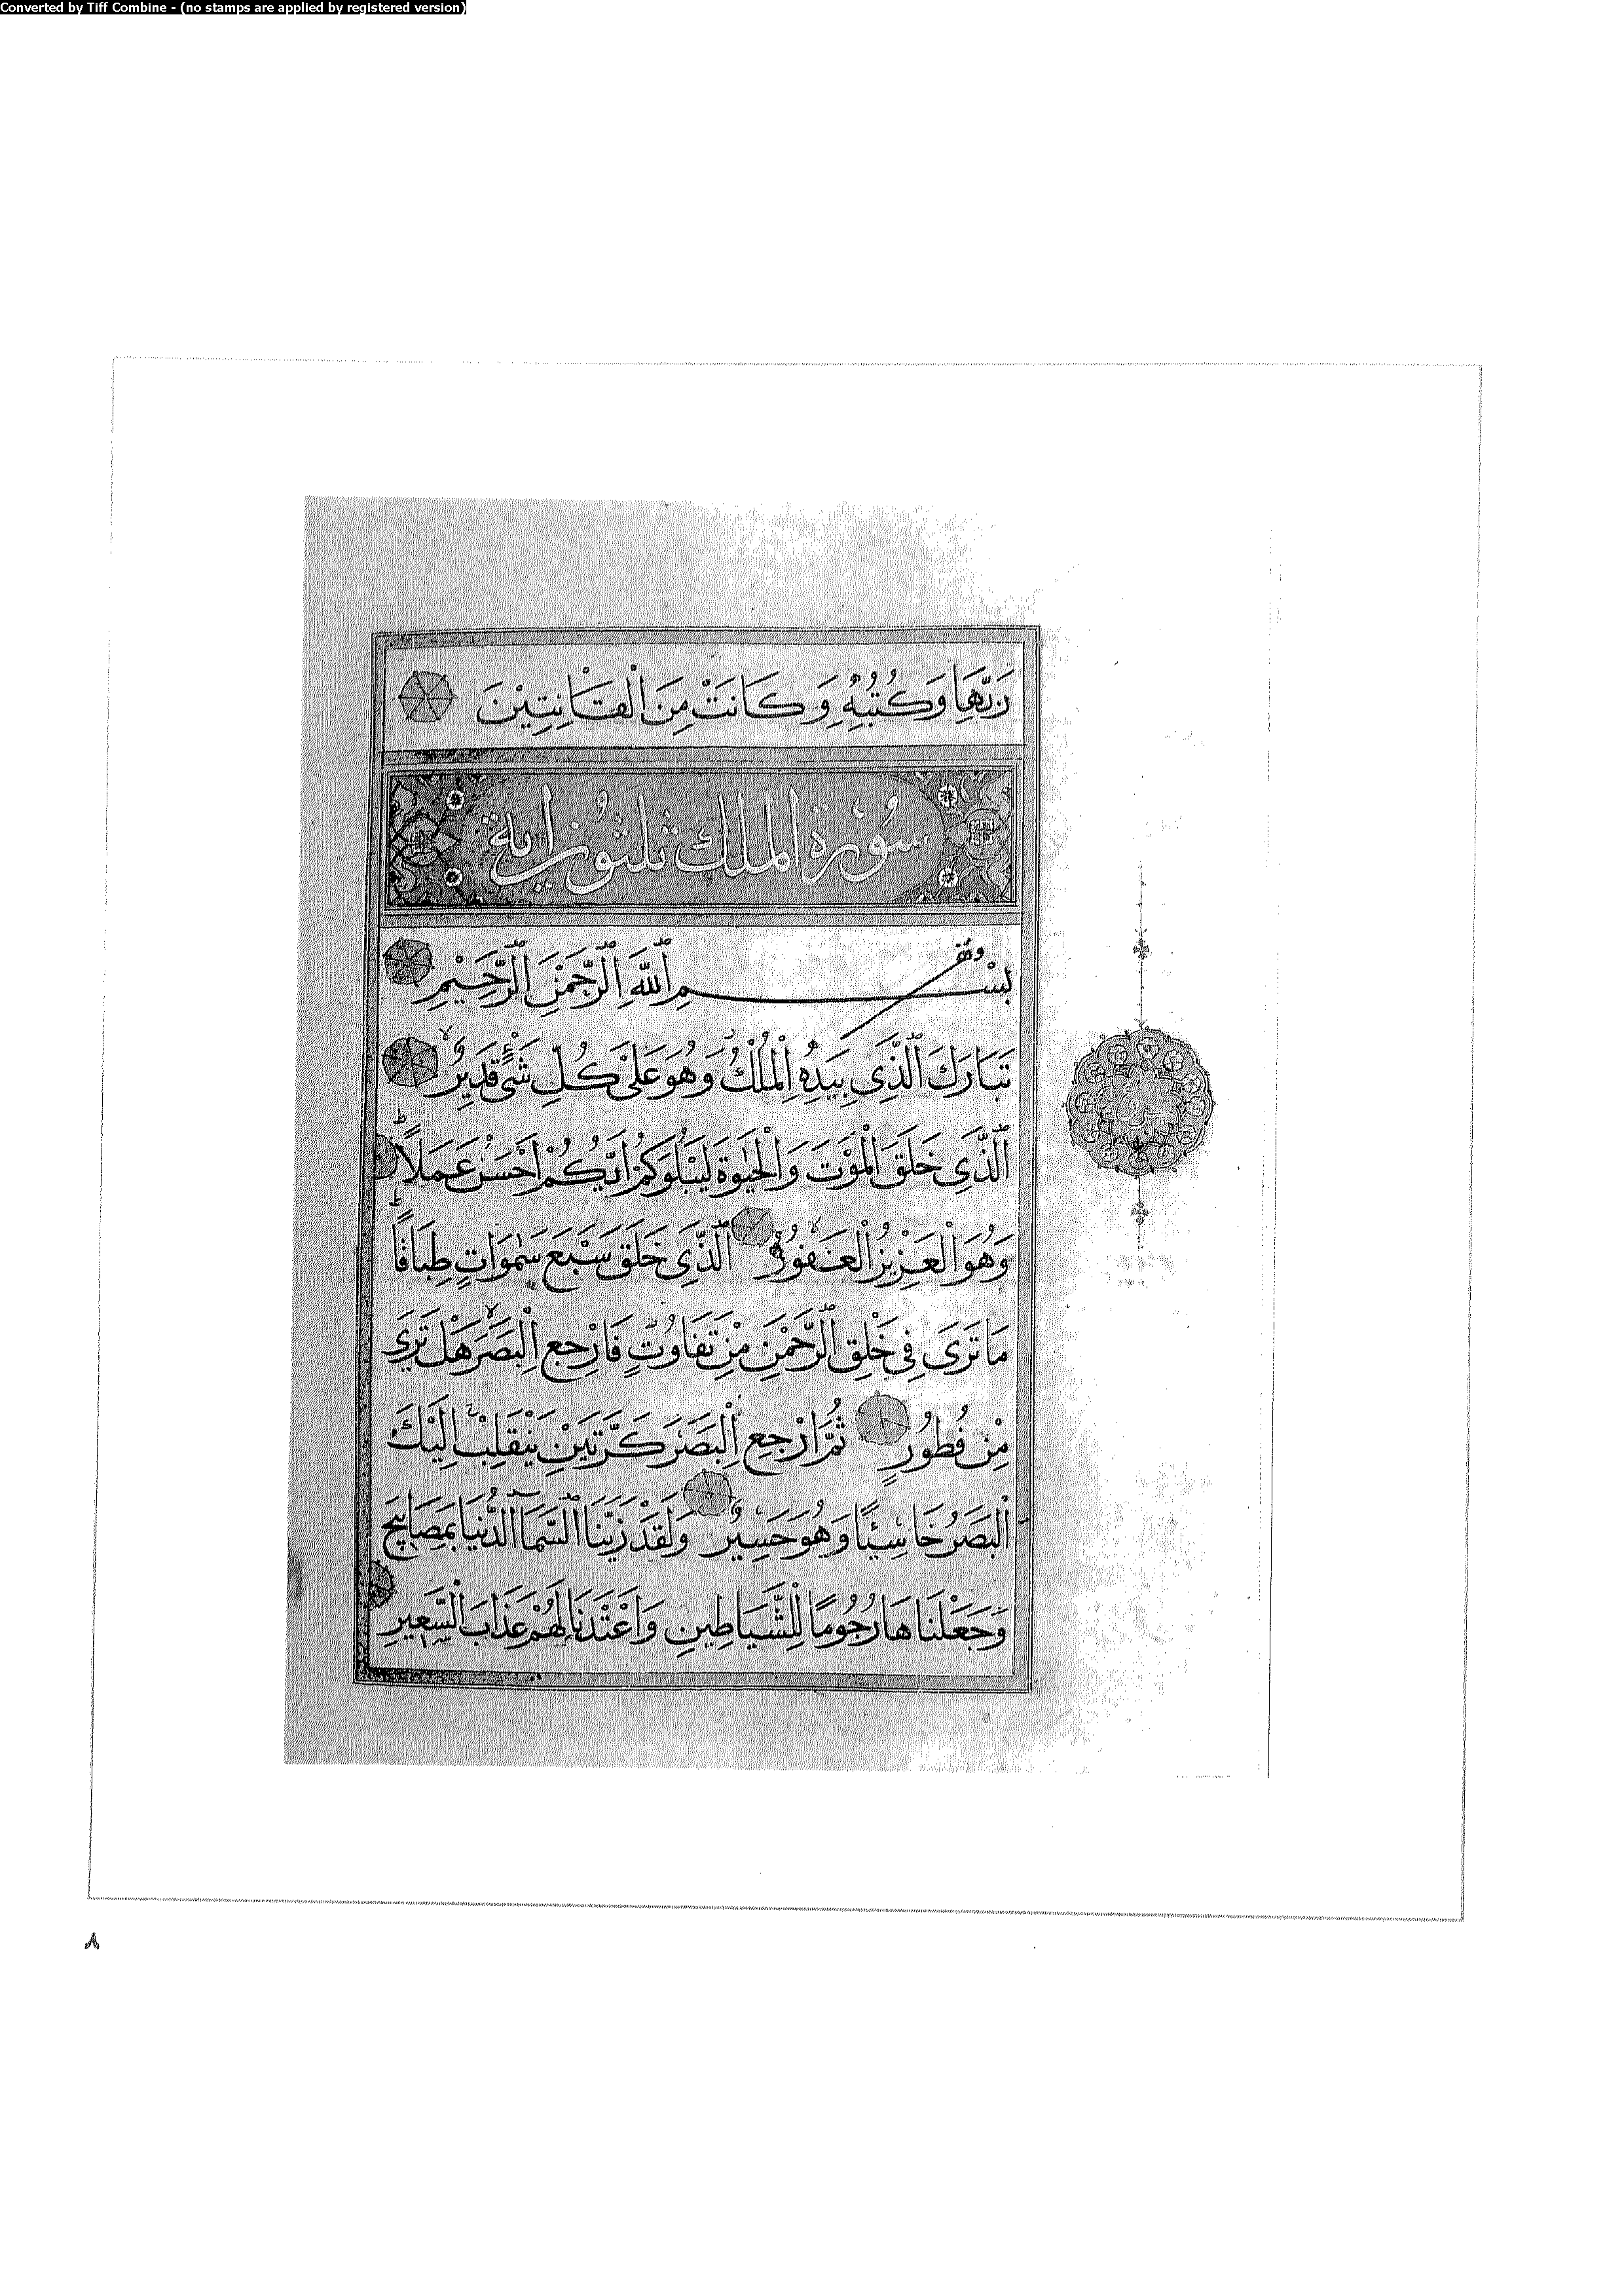 Converted by Tiff Combine - (no stamps are applied by registered version)
رَبِّهَا وَكُتُبِهِ وَكَانَتْ مِنَ الْقَانِتِيْنَ
سُوْرَةُ الْمُلْكِ ثلثون اية
بِسْمِ اللَّهِ الرَّحْمٰنِ الرَّحِيْمِ
وقف
تَبَارَكَ الَّذِى بِيَدِهِ الْمُلْكُ وَهُوَ عَلٰى كُلِّ شَىْءٍ قَدِيْرٌ
الَّذِى خَلَقَ الْمَوْتَ وَالْحَيٰوةَ لِيَبْلُوَكُمْ اَيُّكُمْ اَحْسَنُ عَمَلًا
وَهُوَ الْعَزِيْزُ الْغَفُوْرُ الَّذِى خَلَقَ سَبْعَ سَمٰوَاتٍ طِبَاقًا
مَا تَرَى فِى خَلْقِ الرَّحْمٰنِ مِنْ تَفَاوُتٍ فَارْجِعِ الْبَصَرَ هَلْ تَرَى
مِنْ فُطُوْرٍ ثُمَّ ارْجِعِ الْبَصَرَ كَرَّتَيْنِ يَنْقَلِبْ اِلَيْكَ
الْبَصَرُ خَاسِئًا وَهُوَ حَسِيْرٌ وَلَقَدْ زَيَّنَّا السَّمَآ الدُّنْيَا بِمَصَابِيْحَ
وَجَعَلْنَاهَا رُجُوْمًا لِلشَّيَاطِيْنِ وَاَعْتَدْنَا لَهُمْ عَذَابَ السَّعِيْرِ
٨